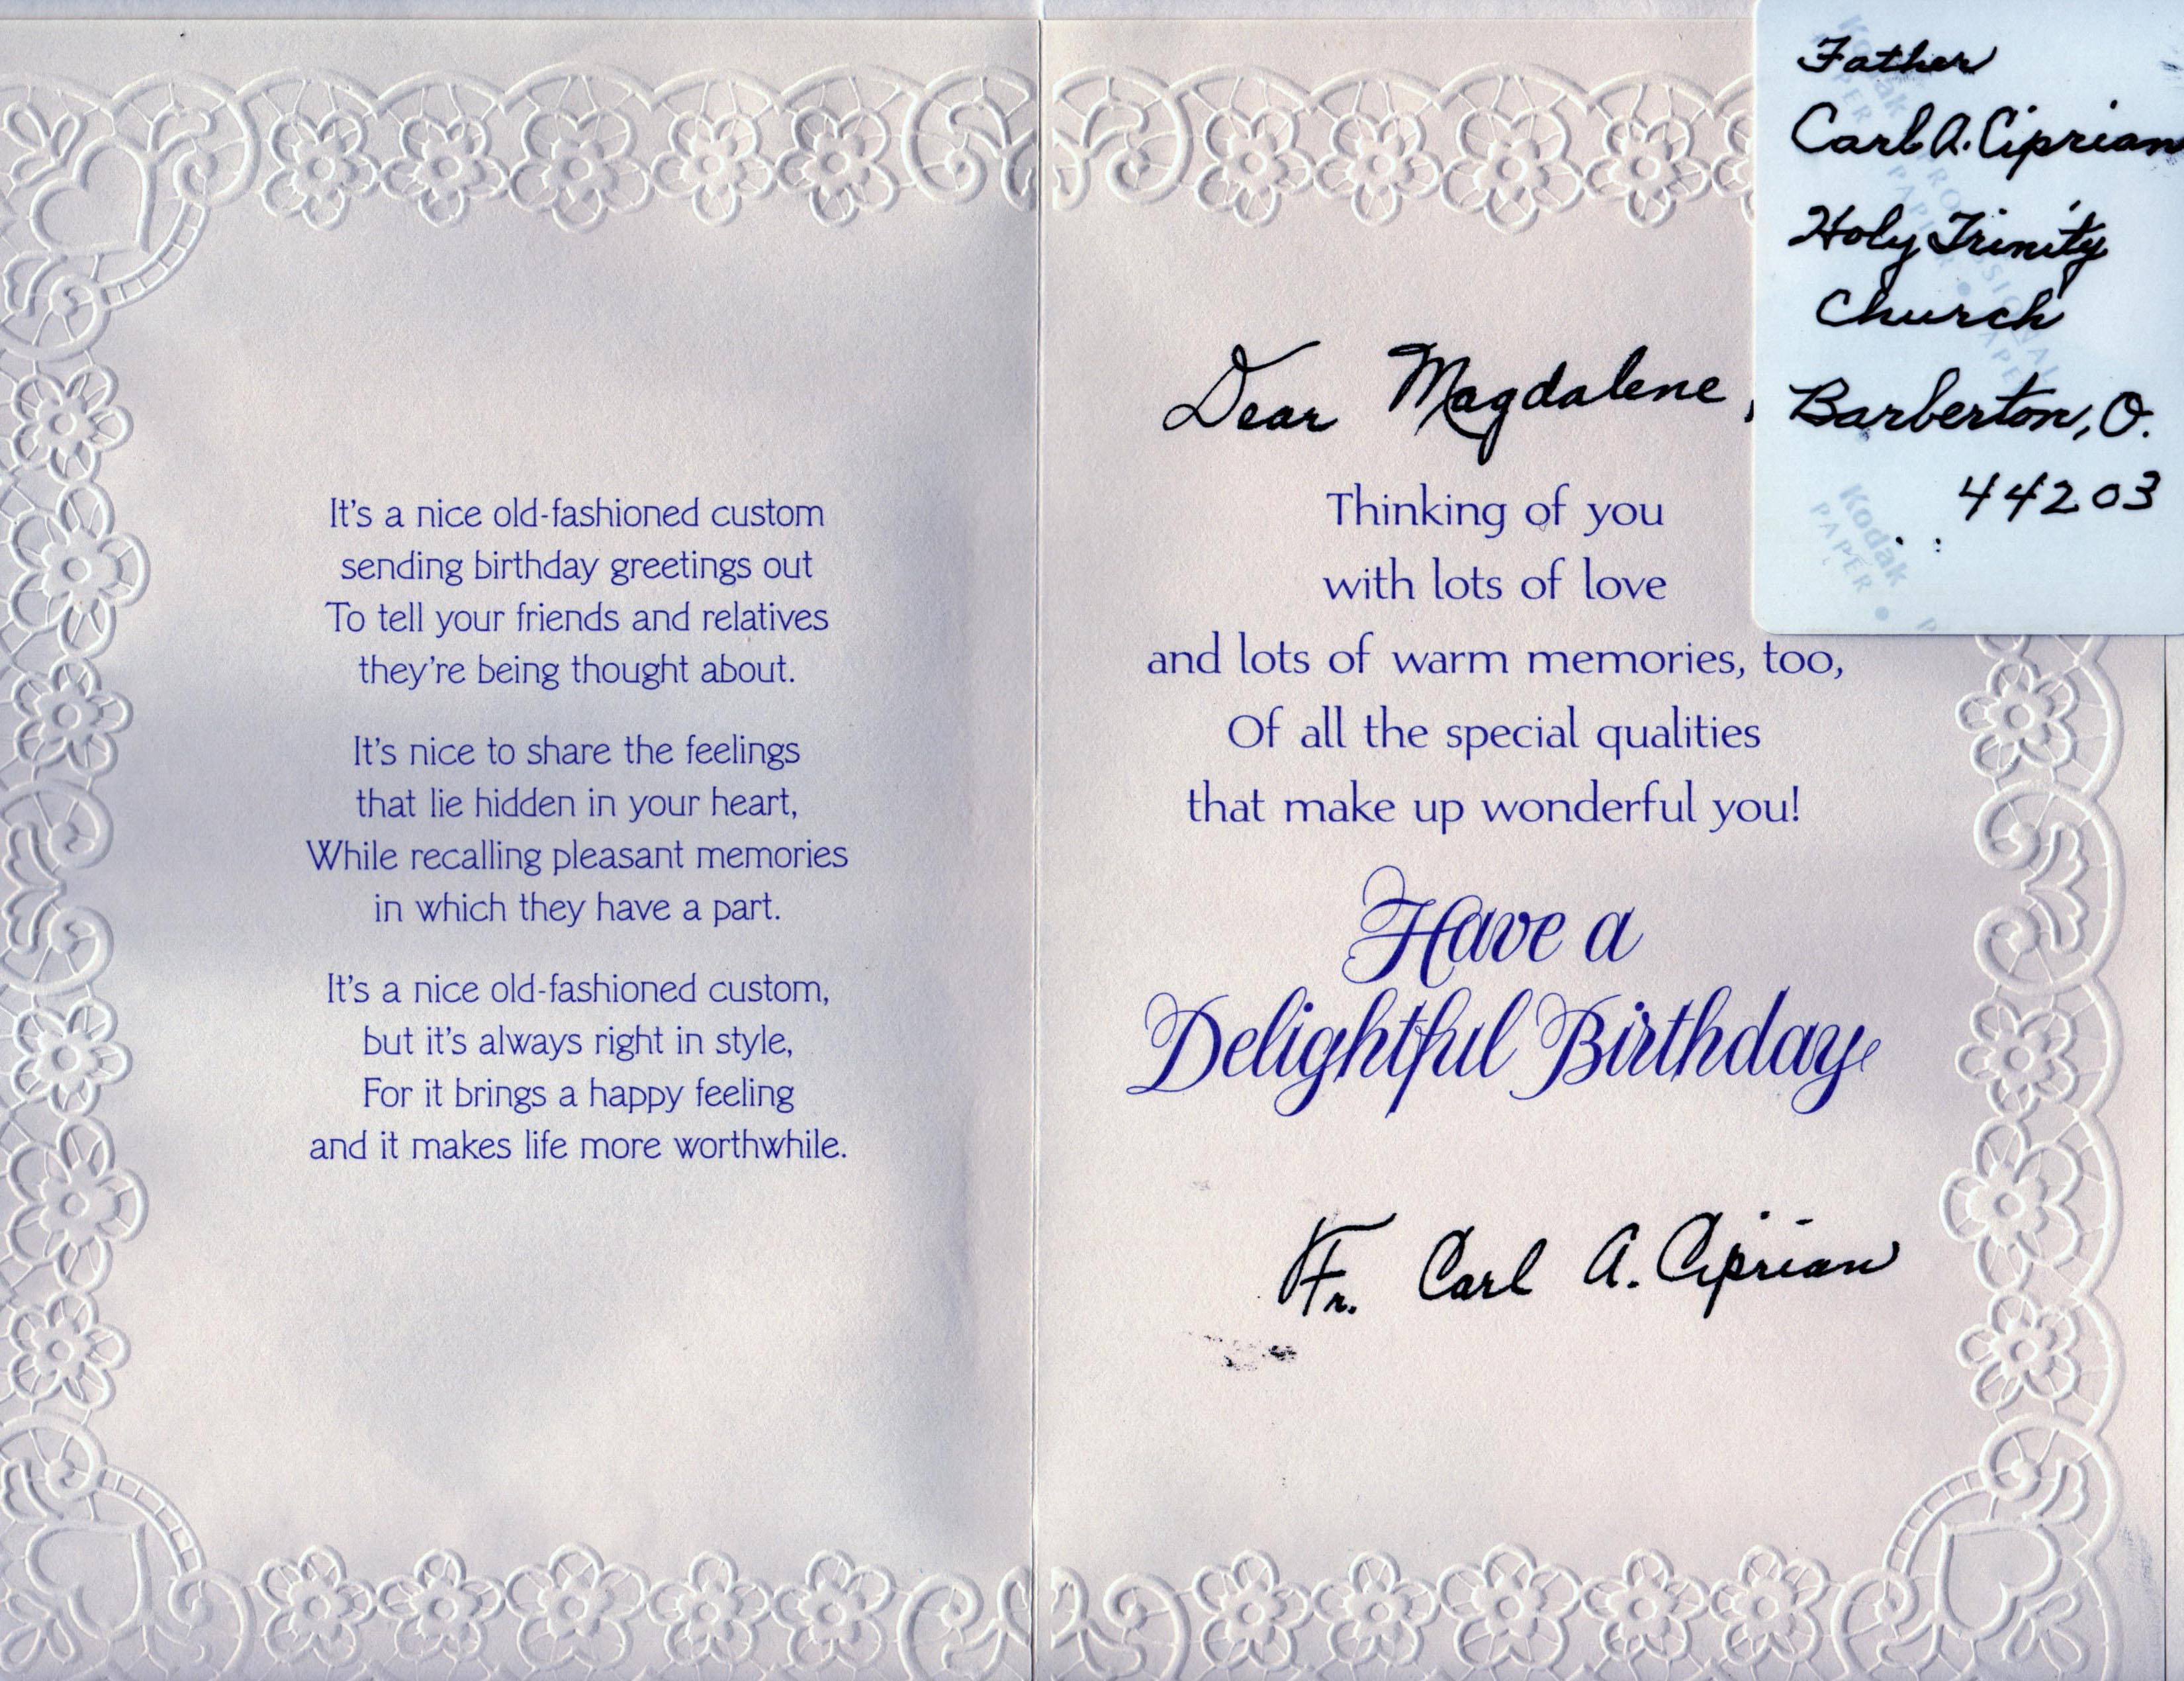 It's a nice old-fashioned custom
sending birthday greetings out
To tell your friends and relatives
they're being thought about.
It's nice to share the feelings
that lie hidden in your heart,
While recalling pleasant memories
in which they have a part.
It's a nice old-fashioned custom,
but it's always right in style,
For it brings a happy feeling
and it makes life more worthwhile.
Dear Magdalene,
Thinking of you
with lots of love
and lots of warm memories, too,
Of all the special qualities
that make up wonderful you!
Have a
Delightful Birthday
Fr. Carl A. Ciprian
Father
Carl A. Ciprian
Holy Trinity
Church
Barberton, O.
44203
Kodak
PAPER
Kodak
PAPER